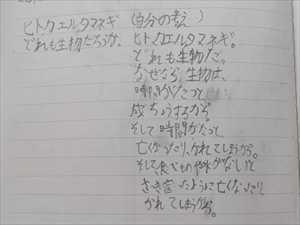 ヒトカエルタマネギ
どれも生物だろうか。
(自分の考え)
ヒトカエルタマネギ。
どれも生物だ。
なぜなら生物は、
時間がたつと
成ちょうするから。
そして時間がたって
亡くなったり、かれてしまうから。
そして食べもの や水がないと
さっき言ったように亡くなったり
かれてしまうから。